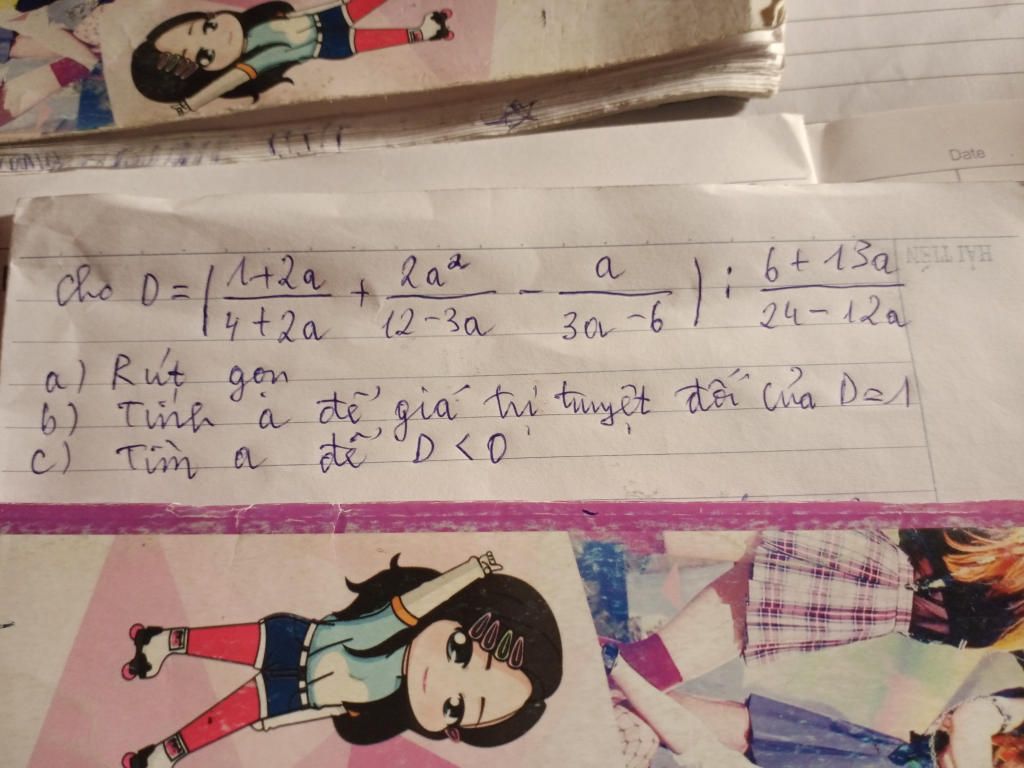 Cho D = ( \frac{1+2a}{4+2a} + \frac{2a²}{12-3a} - \frac{a}{3a-6} ) : \frac{6+13a}{24-12a}
a) Rút gọn
b) Tính a để giá trị tuyệt đối của D=1
c) Tìm a để D < 0
Date
HẢI TIẾN